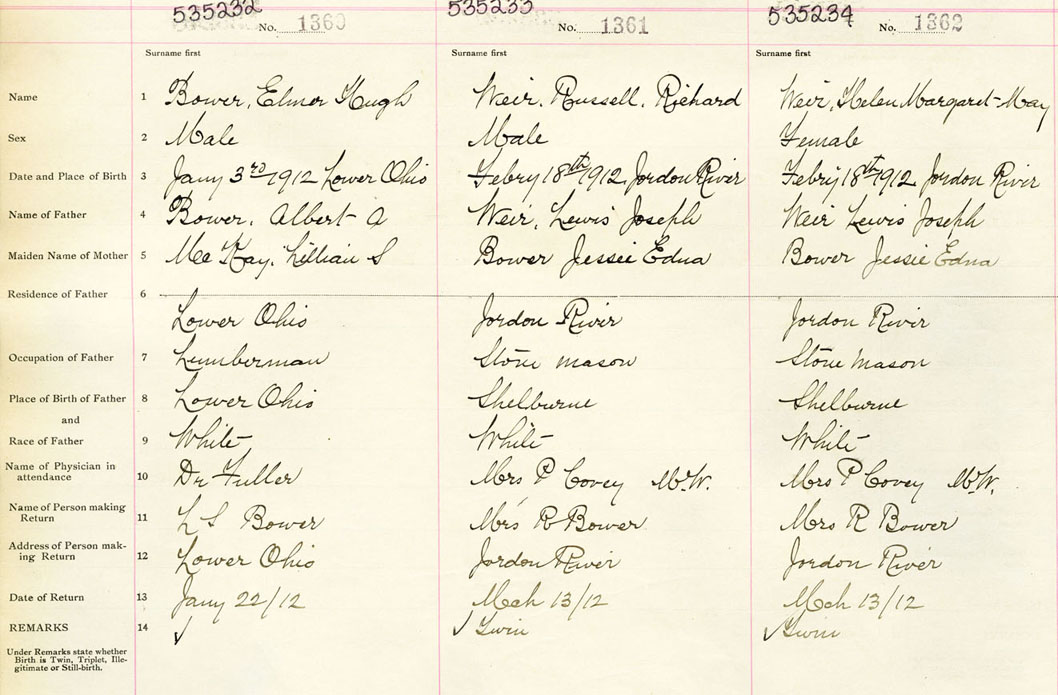 535232 535233 535234
No. 1360 No. 1361 No. 1362
Surname first Surname first Surname first
Name 1 Bower, Elmer Hugh Weir, Russell, Richard Weir, Helen Margaret-May
Sex 2 Male Male Female
Date and Place of Birth 3 Jany 3rd 1912 Lower Ohio Febry 18th 1912, Jordon River Febry 18th 1912 Jordon River
Name of Father 4 Bower, Albert A Weir, Lewis Joseph Weir Lewis Joseph
Maiden Name of Mother 5 Mc Kay, Lillian S Bower Jessie Edna Bower Jessie Edna
Residence of Father 6
Lower Ohio Jordon River Jordon River
Occupation of Father 7 Lumberman Stone mason Stone mason
Place of Birth of Father 8 Lower Ohio Shelburne Shelburne
and
Race of Father 9 White White White
Name of Physician in
attendance 10 Dr Fuller Mrs P Covey M.W. Mrs P Covey M.W.
Name of Person making
Return 11 L S Bower Mrs R Bower Mrs R Bower
Address of Person mak-
ing Return 12 Lower Ohio Jordon River Jordon River
Date of Return 13 Jany 22/12 Mch 13/12 Mch 13/12
REMARKS 14 ✓ ✓ Twin ✓ Twin
Under Remarks state whether
Birth is Twin, Triplet, Ille-
gitimate or Still-birth.